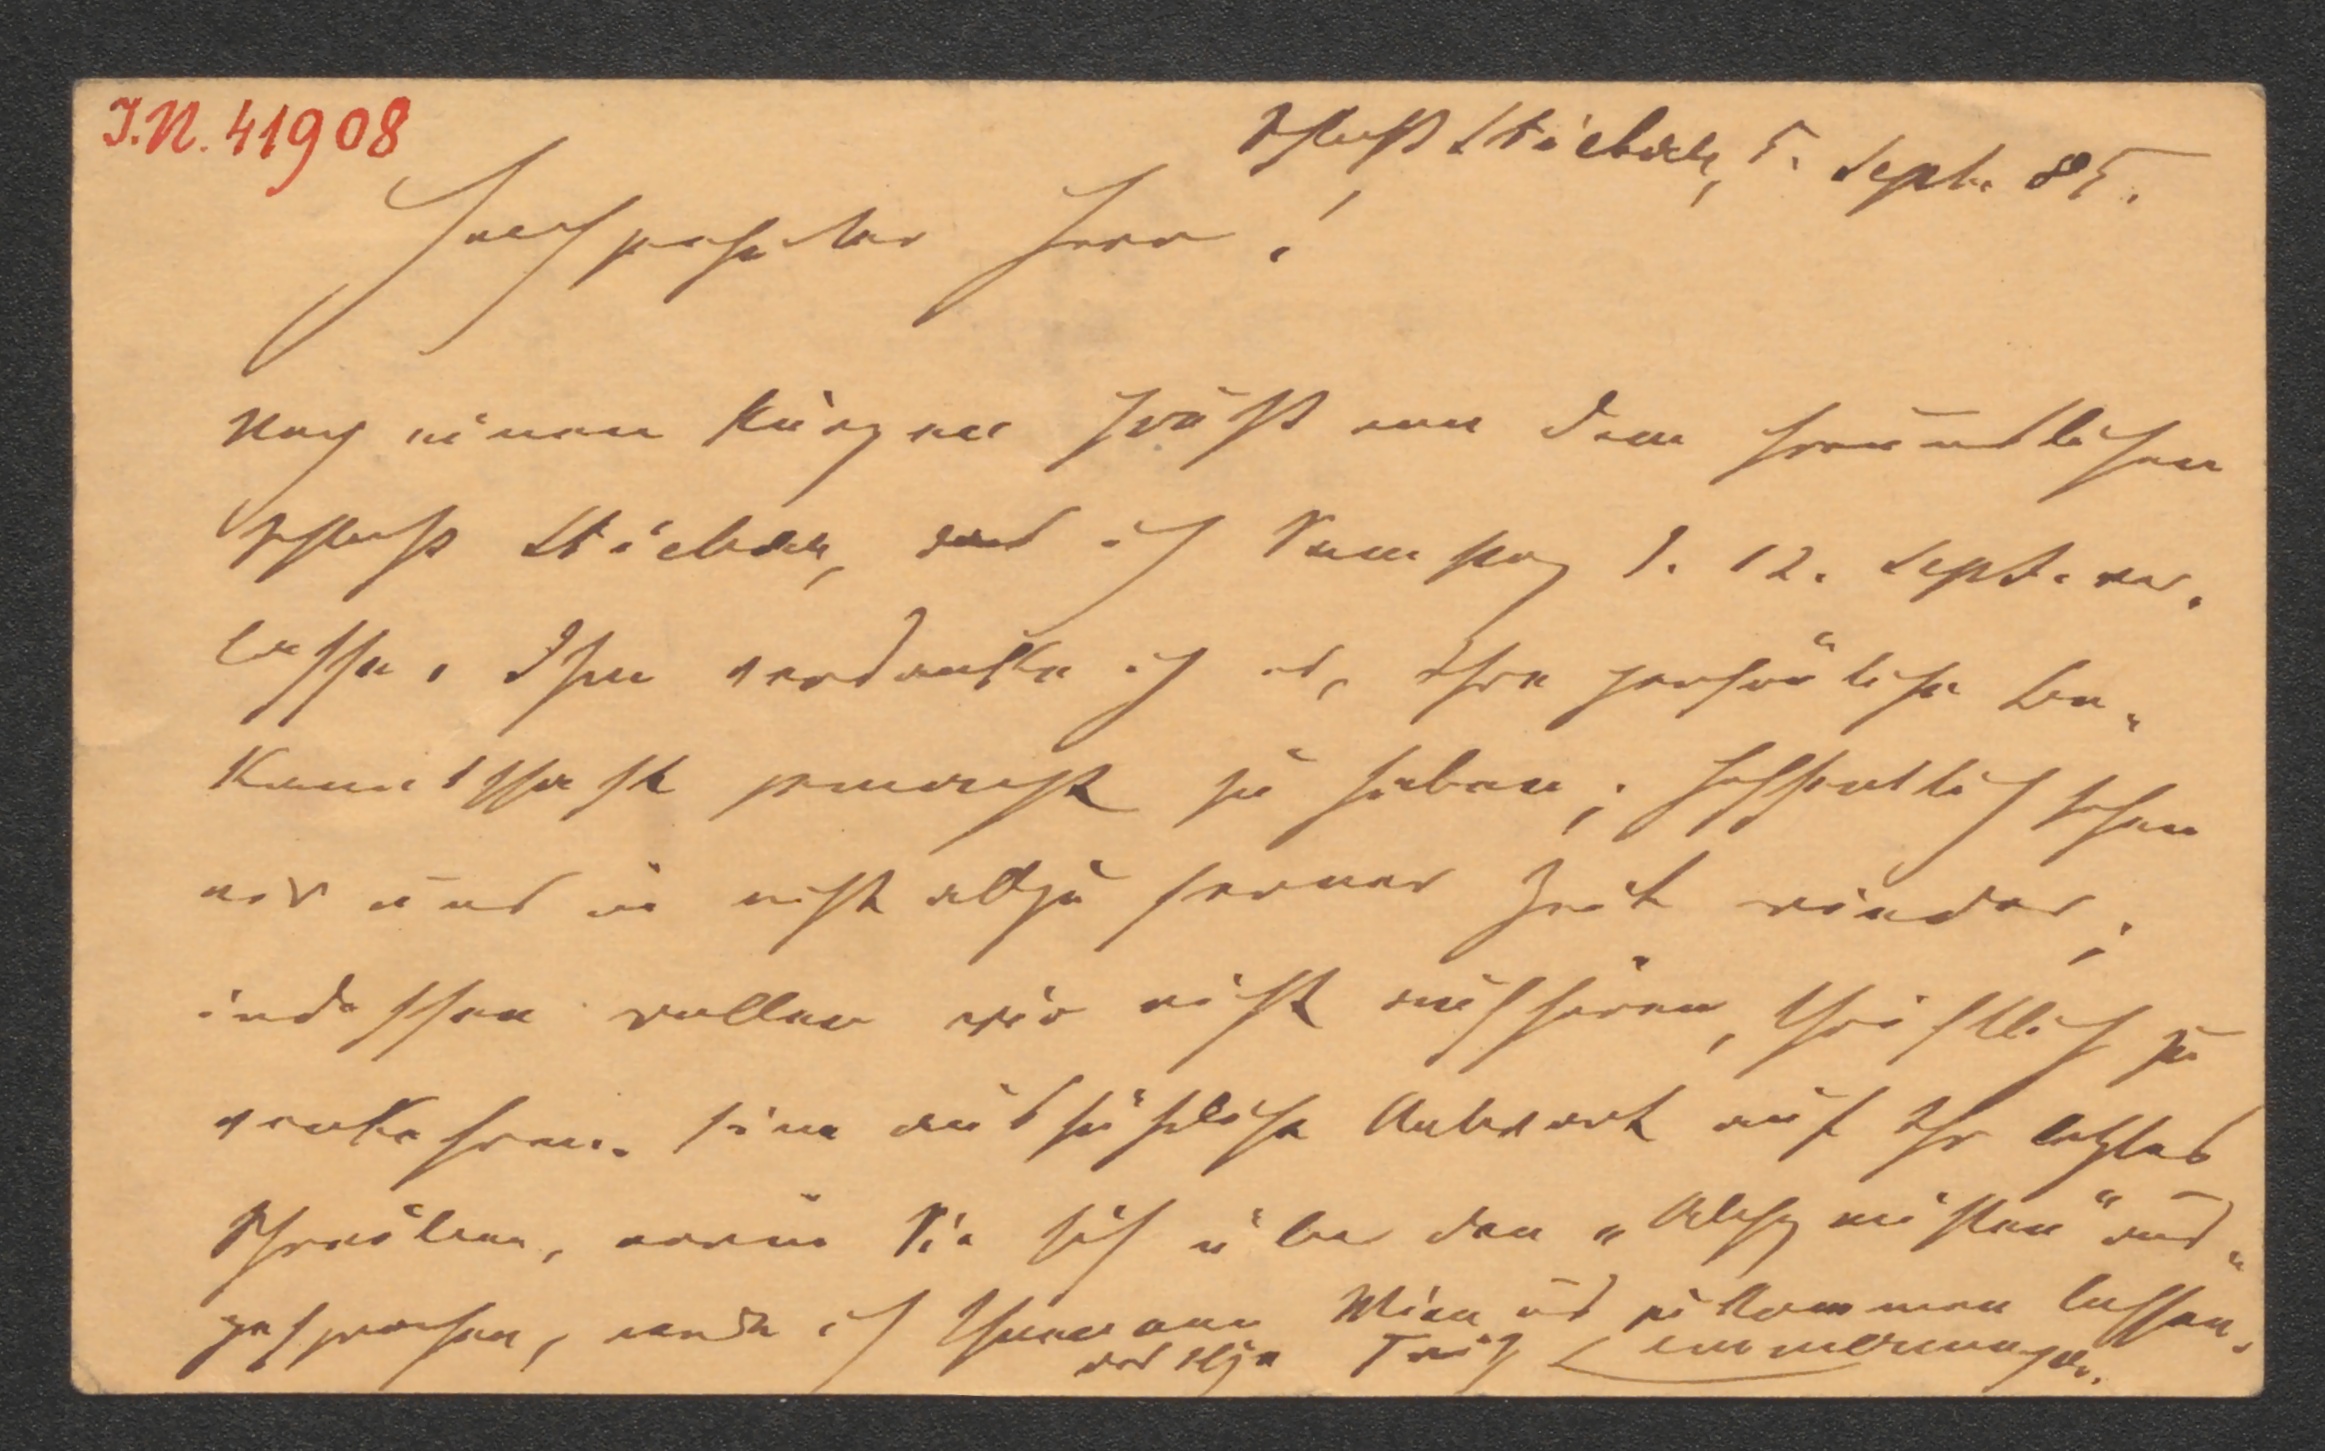 I.N. 41908
Schloß Stiebar, 5. Sept. 85.
Hochgeehrter Herr!
Noch einen kurzen Gruß aus dem freundlichen
Schloß Stiebar, das ich Samstag d. 12. Sept. ver-
lasse. Ihm verdanke ich es, Ihre persönliche Be-
kanntschaft gemacht zu haben; hoffentlich sehen
wir uns in nicht allzu ferner Zeit wieder;
indessen wollen wir nicht aufhören, schriftlich zu
verkehren. Eine ausführliche Antwort auf Ihr letztes
Schreiben, worin Sie sich über den „Alchymisten" aus-
gesprochen, werde ich Ihnen aus Wien zukommen lassen.